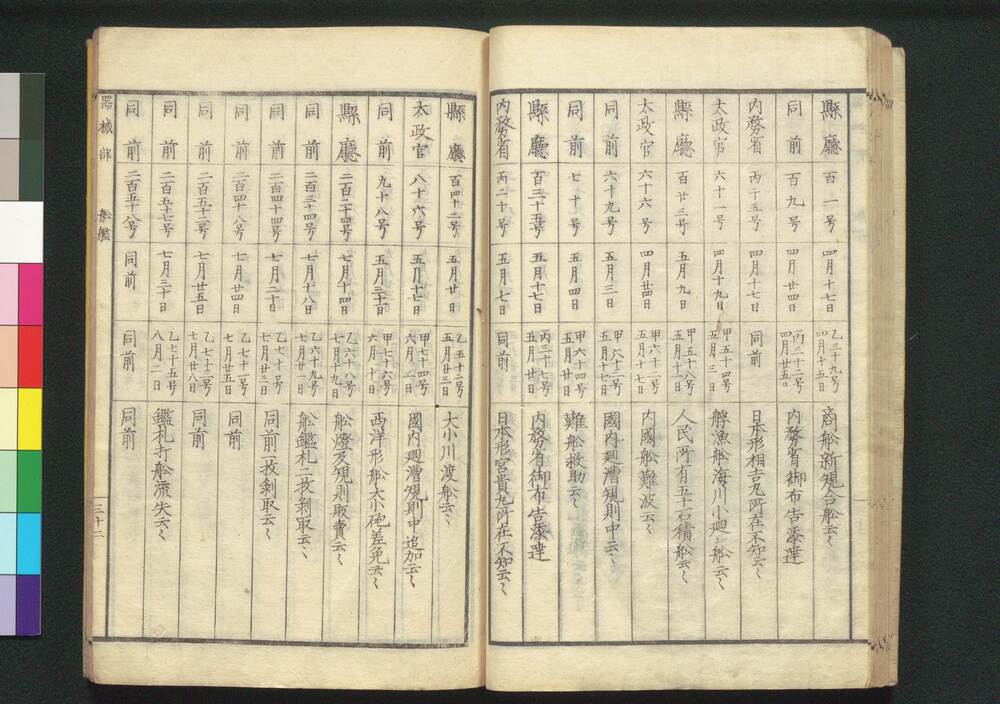 縣廳 百一号 四月十七日 乙三十九号 四月十五日 商舩新規合舩云〻
同前 百九号 四月廿四日 丙三十二号 四月廿五日 内務省御布告添達
内務省 丙十五号 四月十七日 同前 日本形相吉丸所在不知云〻
太政官 六十一号 四月十九日 甲五十四号 五月三日 艀漁舩海川小廻シ舩云〻
縣廳 百廿三号 五月九日 甲五十八号 五月十二日 人民所有五十石積舩云〻
太政官 六十六号 四月廿四日 甲六十一号 五月十七日 内國舩難波云〻
同前 六十九号 五月三日 國内廻漕規則中云〻
同前 七十号 五月四日 甲六十四号 五月廿二日 難舩救助云〻
縣廳 百三十五号 五月十七日 丙三十七号 五月廿日 内務省御布告添達
内務省 丙二十号 五月七日 同前 日本形宮貴丸所在不知云〻
縣廳 百四十二号 五月廿日 乙五十二号 五月廿三日 大小川渡舩云〻
太政官 八十六号 五月十七日 甲七十四号 六月二日 國内廻漕規則中追加云〻
同前 九十八号 五月三十日 甲七十六号 六月十日 西洋形舩大小砲差免云〻
縣廳 二百二十四号 七月十四日 乙六十八号 七月十九日 舩燈及規則販賣云〻
同前 二百三十四号 七月十八日 乙六十九号 舩鑑札二枚剥取云〻
同前 二百四十四号 七月二十日 乙七十号 七月廿三日 同前一枚剥取云〻
同前 二百四十八号 七月廿四日 乙七十一号 七月廿五日 同前
同前 二百五十二号 七月廿五日 乙七十二号 七月廿八日 同前
同前 二百五十七号 七月三十日 乙七十五号 八月二日 鑑札打舩流失云〻
同前 二百五十八号 同前 同前 同前
器械部 舩艦 三十二